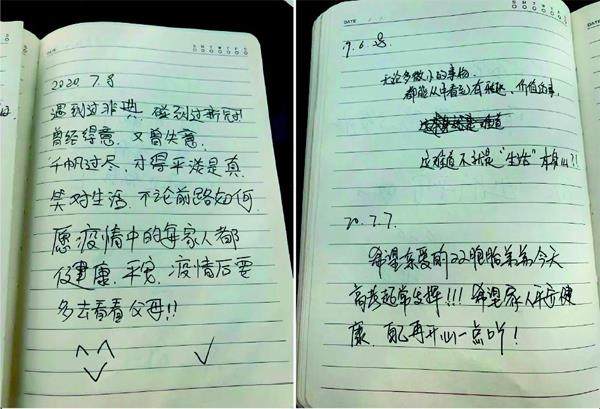 S M T W T F S
2020. 7.8
遇到过非典,碰到过新冠
曾经得意,又曾失意.
千帆过尽,才得平淡是真.
笑对生活,不论前路如何.
愿疫情中的每家人都
健康,平安,疫情后要
多去看看父母!!
DATE
S M T W T F S
无论多微小的事物,
都能从中看到有 价值的事
这难道不就是“生活”本身 ?!
20.7.7.
希望亲爱的 胞胎弟弟今天
高考超常发挥!!! 希望家人平安健
康, 再开心一点吖!